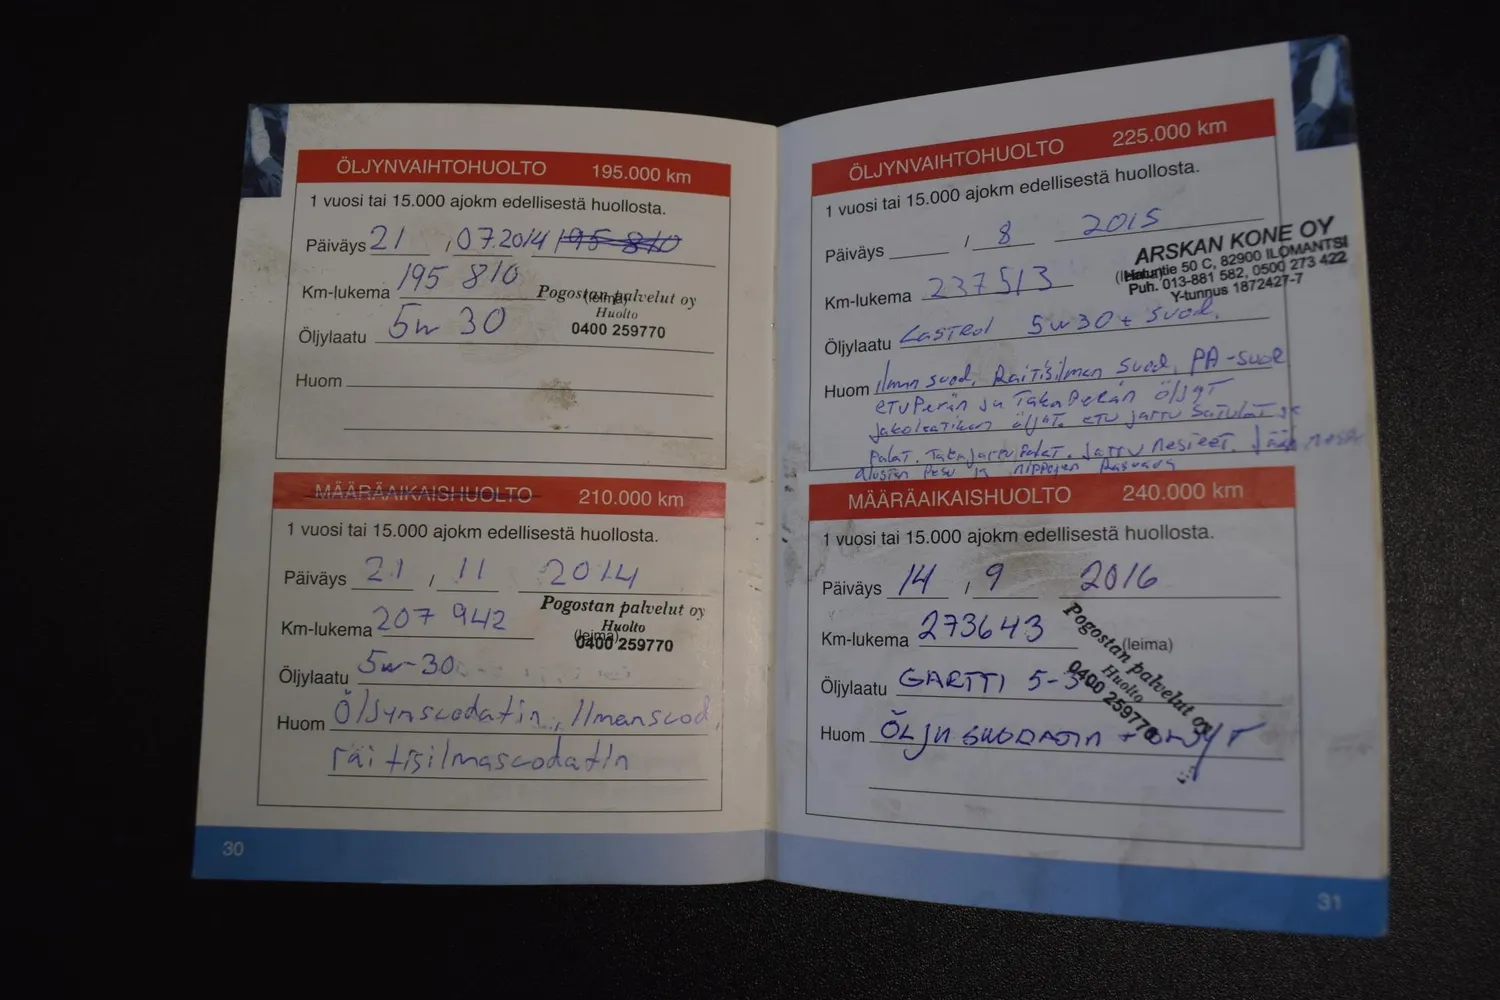 ÖLJYNVAIHTOHUOLTO 195.000 km
1 vuosi tai 15.000 ajokm edellisestä huollosta.
Päiväys 21 , 07.2014 195 810
Km-lukema 195 810
(leima)
Pogostan palvelut oy
Huolto
0400 259770
Öljylaatu 5w 30
Huom
MÄÄRÄAIKAISHUOLTO 210.000 km
1 vuosi tai 15.000 ajokm edellisestä huollosta.
Päiväys 21 , 11 2014
Km-lukema 207 942
(leima)
Pogostan palvelut oy
Huolto
0400 259770
Öljylaatu 5w-30
Huom Öljynsuodatin, Ilmansuod,
räitisilmasuodatin
30
ÖLJYNVAIHTOHUOLTO 225.000 km
1 vuosi tai 15.000 ajokm edellisestä huollosta.
Päiväys / 8 2015
Km-lukema 237513
(leima)
ARSKAN KONE OY
50 C, 82900 ILOMANTSI
Puh. 013-881 582, 0500 273 422
Y-tunnus 1872427-7
Öljylaatu Castrol 5w30 + Suod.
Huom ilman suod, Raitisilman Suod, PA-suod
etuperän ja Takaperän öljyt
jakolaatikon öljyt, etu jarru Satulat ja
Palat, Takajarru Palat. Jarru nesteet.
alustan Pesu ja nippojen Rasvaus
MÄÄRÄAIKAISHUOLTO 240.000 km
1 vuosi tai 15.000 ajokm edellisestä huollosta.
Päiväys 14 , 9 2016
Km-lukema 273643
(leima)
Pogostan palvelut oy
Huolto
0400 259770
Öljylaatu GARTTI 5-30
Huom ÖLJYNSUODATIN + ÖLJYT
31